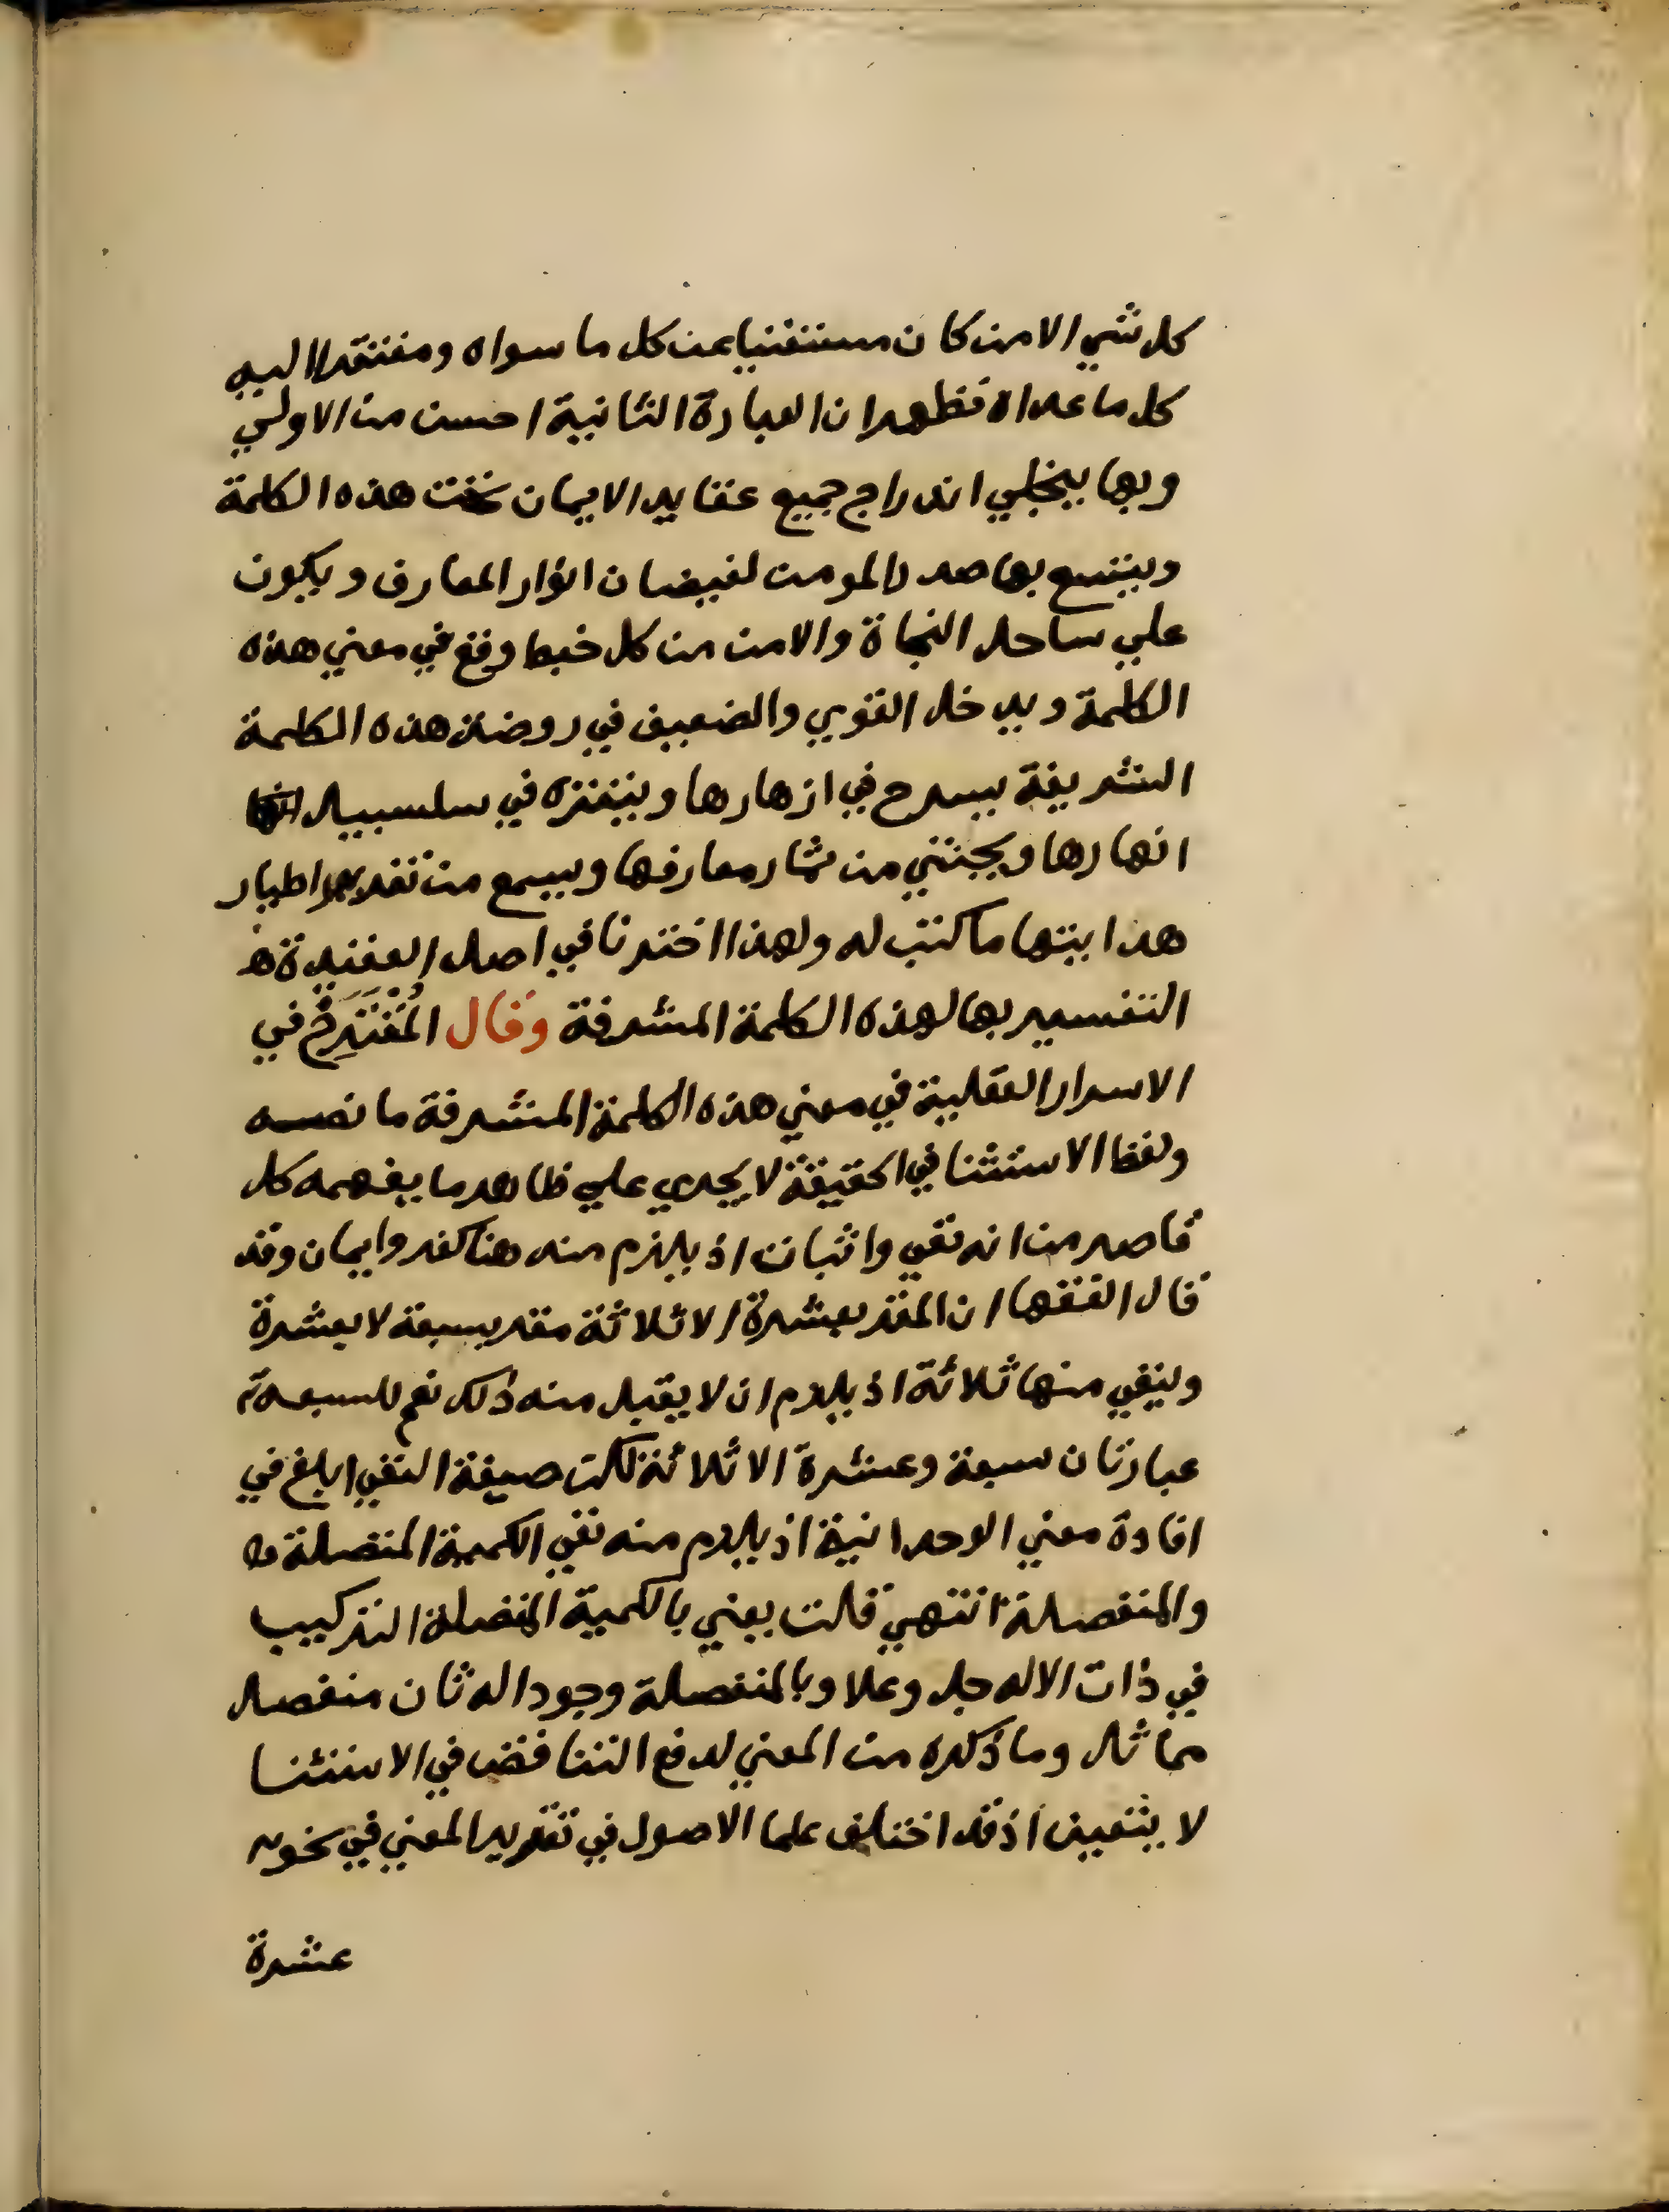 كل شي الا من كان مستغنيا عن كل ما سواه ومفتقرا اليه
كل ما عداه فظهر ان العبارة الثانية احسن من الاولي
وبها ينجلي اندراج جميع عقايد الايمان تحت هذه الكلمة
ويتسع بها صدر المومن لفيضان انوار المعارف ويكون
علي ساحل النجاة والامن من كل خبط وقع في معني هذه
الكلمة ويدخل القوي والضعيف في روضة هذه الكلمة
الشريفة يسرح في ازهارها ويتنزه في سلسبيل
انهارها ويجتني من ثمار معارفها ويسمع من تغريد اطيار
هدايتها ما كتب له ولهذا اخترنا في اصل العقيدة
التفسير بها لهذه الكلمة المشرفة وقال المُقْتَرَحُ في
الاسرار العقلية في معني هذه الكلمة المشرفة ما نصه
ولفظ الاستثنا في الحقيقة لا يجري علي ظاهر ما يفهمه كل
قاصر من انه نفي واثبات اذ يلزم منه هنا كفر وايمان وقد
قال الفقها ان المقر بعشرة الا ثلاثة مقر بسبعة لا بعشرة
وينفي منها ثلاثة اذ يلزم ان لا يقبل منه ذلك نعم للسبعة
عبارتان سبعة وعشرة الا ثلاثة لكن صيغة النفي ابلغ في
افادة معني الوحدانية اذ يلزم منه نفي الكمية المتصلة
والمنفصلة انتهي قلت يعني بالكمية المتصلة التركيب
في ذات الاله جل وعلا وبالمنفصلة وجود اله ثان منفصل
مماثل وما ذكره من المعني لدفع التناقض في الاستثنا
لا يتعين اذ قد اختلف علما الاصول في تقرير المعني في نحو
عشرة